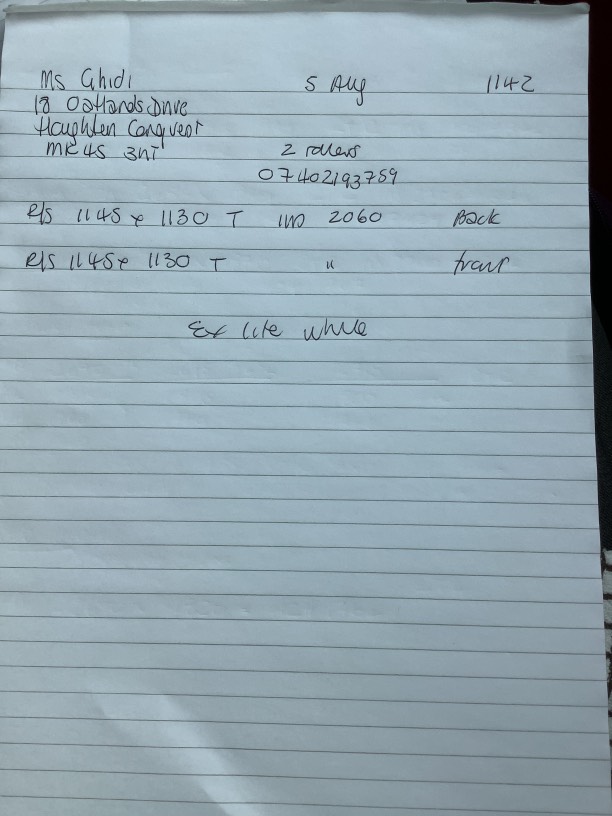 Ms Ghidi 5 Aug 1142
18 Oatlands Drive
Houghten Conquest
MK45 3NT 2 rollers
07402193759
R/S 1145 x 1130 T IMP 2060 Back
R/S 1145 x 1130 T " front
Ex lite white